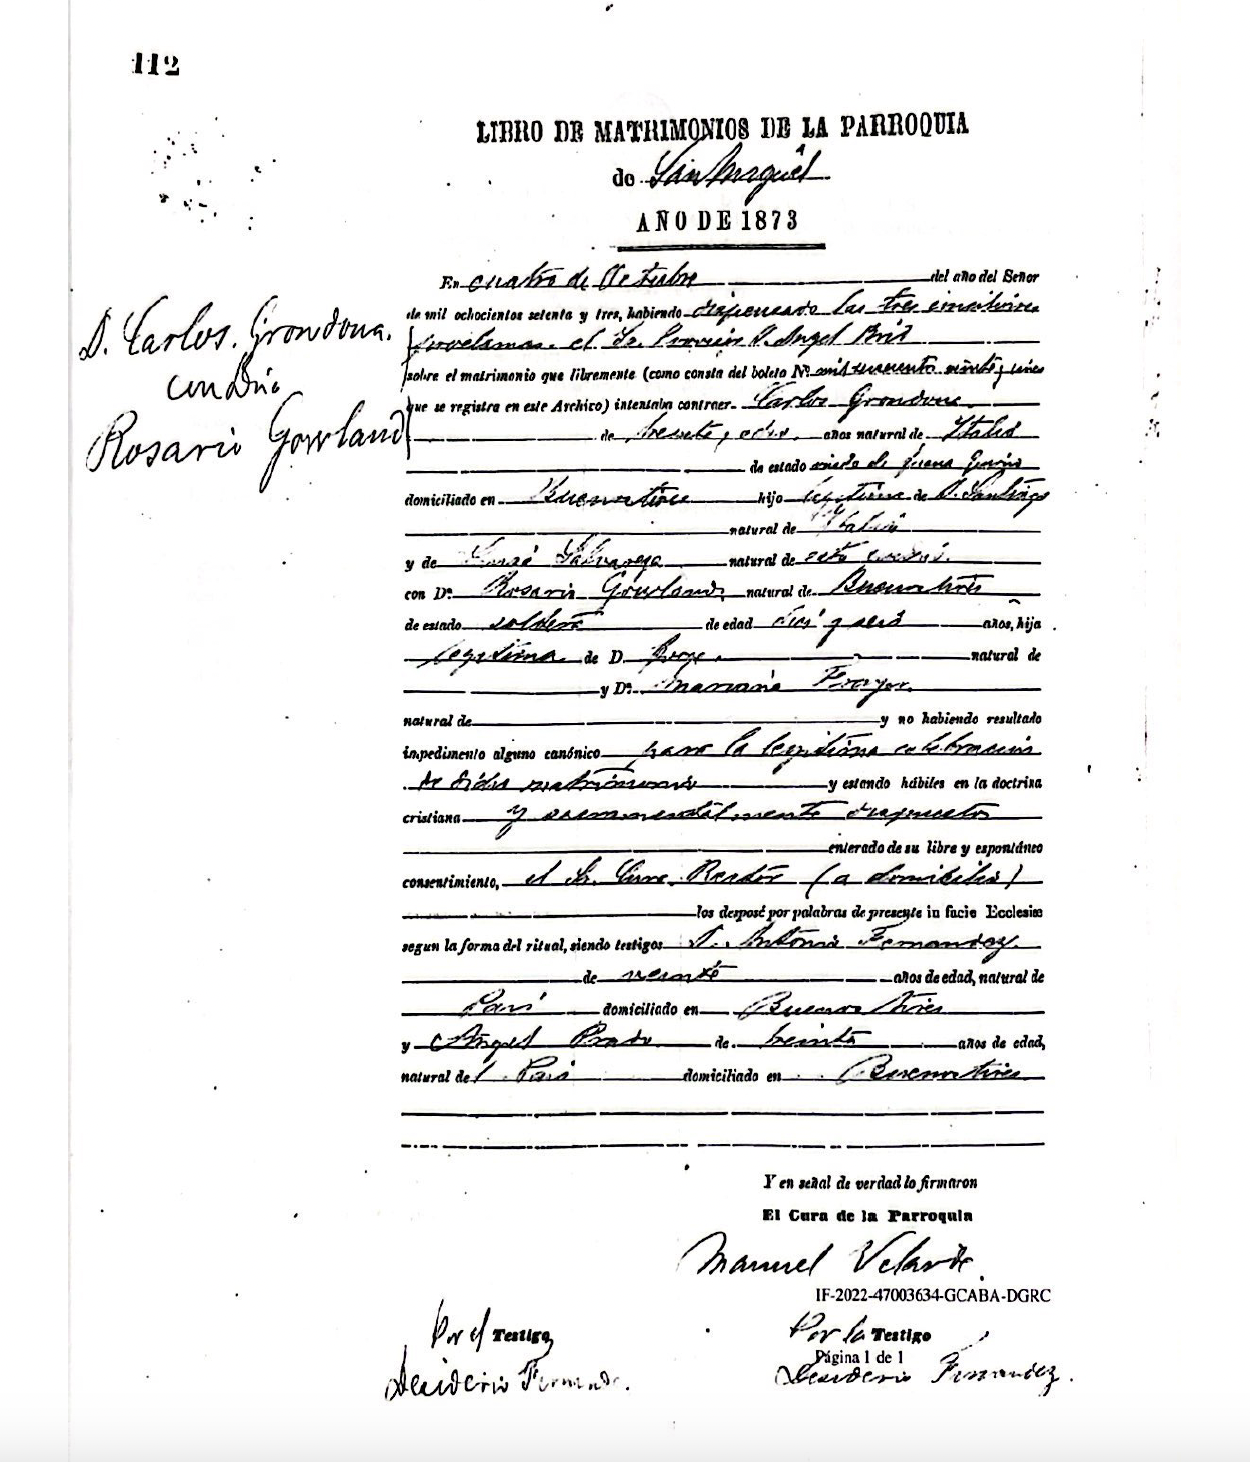 112
LIBRO DE MATRIMONIOS DE LA PARROQUIA
de San Miguel
AÑO DE 1873
D. Carlos. Grondona.
con Dña
Rosario Gowland
En cuatro de Octubre del año del Señor
de mil ochocientos setenta y tres, habiendo dispensado las tres conciliares
proclamas el Sr. Provisor D. Angel
sobre el matrimonio que libremente (como consta del boleto Nº mil
que se registra en este Archivo) intentaba contraer Carlos Grondona
de treinta y ocho años natural de Italia
de estado viudo de Juana
domiciliado en Buenos Aires hijo legitimo de D. Santiago
natural de Italia
y de natural de
con Dª Rosario Gowland, natural de Buenos Aires
de estado soltera de edad diez y seis años, hija
legitima de D. Jorge natural de
y Dª Mariana
natural de y no habiendo resultado
impedimento alguno canónico para la legitima celebracion
de dicho matrimonio y estando hábiles en la doctrina
cristiana y sacramentalmente dispuestos
enterado de su libre y espontáneo
consentimiento, el Sr. Cura Rector (a domicilio)
los desposé por palabras de presente in facie Ecclesiæ
segun la forma del ritual, siendo testigos D. Antonio Fernandez
de veinte años de edad, natural de
Pais domiciliado en Buenos Aires
y Angel Prado de treinta años de edad,
natural del Pais domiciliado en Buenos Aires
Y en señal de verdad lo firmaron
El Cura de la Parroquia
Manuel Velarde.
IF-2022-47003634-GCABA-DGRC
Por el Testigo Por la Testigo
Página 1 de 1
Desiderio Fernandez. Desiderio Fernandez.